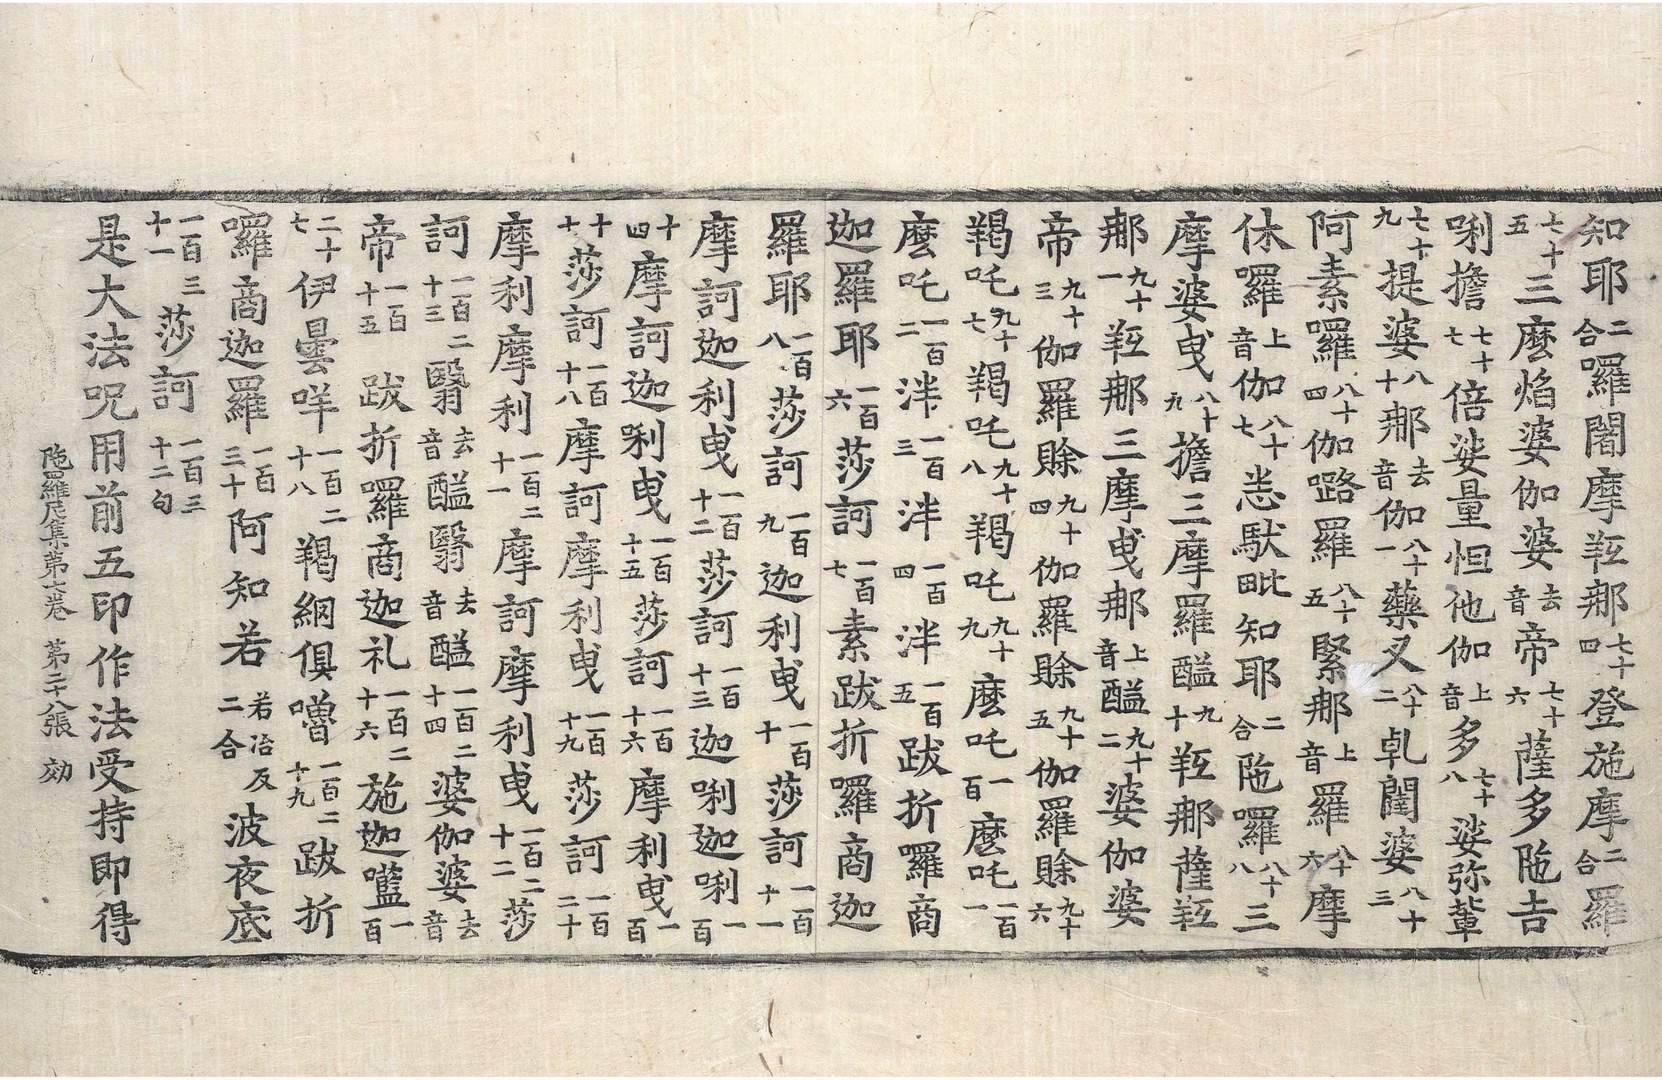 知耶二合囉闍摩羟那七十四登施摩二合羅
七十五三麽焰婆伽婆去音帝七十六薩多陁吉
唎擔七十七倍娑量怛他伽上音多七十八娑弥輦
七十九提婆八十那去音伽八十一藥叉八十二乹闥婆八十三
阿素囉八十四伽路羅八十五緊那上音羅八十六摩
休囉上音伽八十七恙䭾毗知耶二合陁囉八十八三
摩婆曳八十九擔三摩羅醯九十羟那薩羟
那九十一羟那三摩曳那上音醯九十二婆伽婆
帝九十三伽羅賒九十四伽羅賒九十五伽羅賒九十六
羯吒九十七羯吒九十八羯吒九十九麽吒一百麽吒一百一
麽吒一百二泮一百三泮一百四泮一百五跋折囉商
迦羅耶一百六莎訶一百七素跋折囉商迦
羅耶一百八莎訶一百九迦利曳一百十莎訶一百十一
摩訶迦利曳一百十二莎訶一百十三迦唎迦唎一百
十四摩訶迦唎曳一百十五莎訶一百十六摩利曳一百
十七莎訶一百十八摩訶摩利曳一百十九莎訶一百二十
摩利摩利一百二十一摩訶摩利曳一百二十二莎
訶一百二十三翳去音醯翳去音醯一百二十四婆伽婆去音
帝一百二十五跋折囉商迦礼一百二十六施迦嚂一百
二十七伊曇咩一百二十八羯綱俱嚕一百二十九跋折
囉商迦羅一百三十阿知若若冶反二合波夜底
一百三十一莎訶一百三十二句
是大法呪用前五印作法受持即得
陁羅尼集第七卷 第二十八張 効